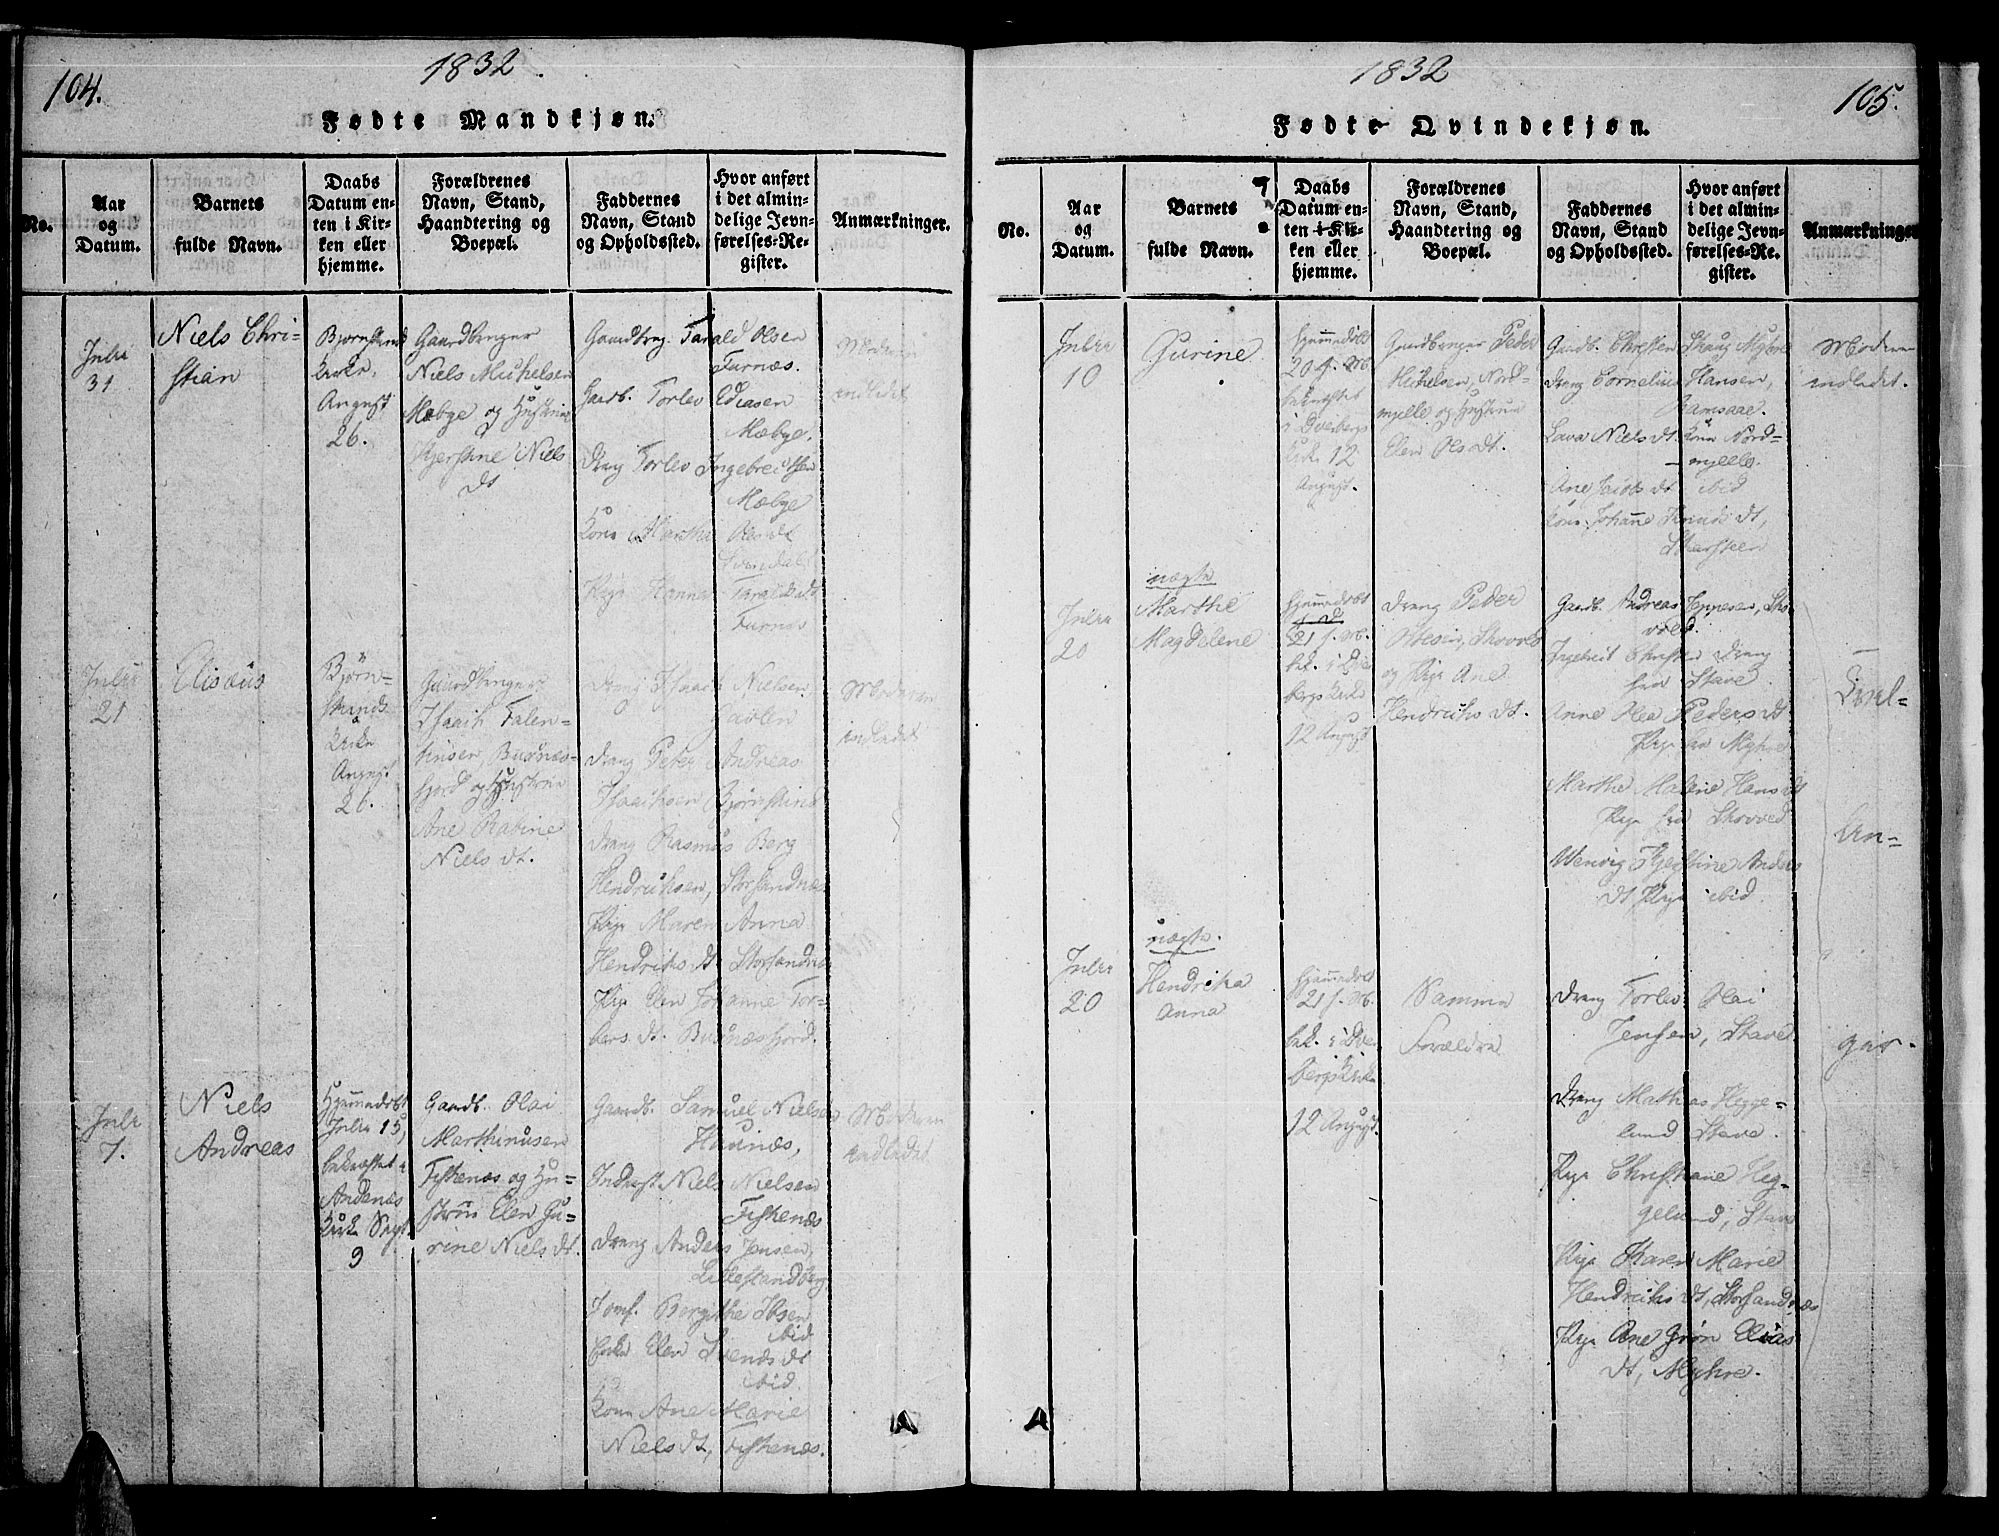 104.
1832
Fødte Mandkjøn.
No.
Aar
og
Datum.
Barnets
fulde Navn.
Daabs
Datum en-
ten i Kir-
ken eller
hjemme.
Forældrenes
Navn, Stand,
Haandtering og
Boepæl.
Faddernes
Navn, Stand
og Opholdssted.
Hvor anført
i det almin-
delige Jevn-
førelses-Re-
gister.
Anmærkninger.
Julii
31
Niels Chri-
stian
Kirke,
August
26.
Gaardbruger
Niels Michelsen
Mæbye og Hustrue
Niels
dt
Tarald Olsen
Furnæs.
Gaardb. Torlev Ediasen
Mæbye.
Dreng Torlev Ingebreitsen
Mæbye
Kone Marthe Olsdt
Pige Hanna Taralds dt
Furnæs
Moderen
indledet
Julii
21
Elisæus
Bjørn-
skinds
Kirke
August
26.
Gaardbruger
Isaach Falen-
tinsen, Busnæs-
fjord og Hustrue
Ane Rabine
Niels dt.
Dreng Isaach Nielsen
Gavlen
Dreng Peter Andreas
Isaachsen Bjørnskind
Dreng Rasmus Berg
Hendrichsen, Storsandnæs
Pige Maren Anna
Hendrichs dt Storsandnæs
Pige Elen Johanne Tor-
bers. dt. Busnæsfjord.
Moderen
indledet
Julii
7.
Niels
Andreas
Hjemmedøbt
Julii 15,
bekræftet i
Andenæs
Kirke Sept
9
Gaardb. Olai
Marthinusen
Fiskenæs og Hu-
strue Elen Gu-
rine Niels dt.
Gaardb. Samuel Nielsen
Haunæs,
Inderst Niels Nielsen
Fiskenæs
Dreng Anders Jensen,
Jomf. Bergithe Ibsen
ibid
Enke Elen Svends dt
ibid.
Kone Ane Marie
Niels dt, Fiskenæs.
Moderen
indledet
1832
105.
Fødte Qvindekjøn.
No.
Aar
og
Datum.
Barnets
fulde Navn.
Daabs
Datum en-
ten i Kir-
ken eller
hjemme.
Forældrenes
Navn, Stand,
Haandtering og
Boepæl.
Faddernes
Navn, Stand
og Opholdssted.
Hvor anført
i det almin-
delige Jevn-
førelses-Re-
gister.
Anmærkninger
Julii
10
Gurine
Hjemmedøbt
20 f. M.
bekræftet
i Dverbergs
Kirke 12
August.
Gaardbruger Peder
Michelsen, Nord-
mjelle og Hustrue
Elen Ols dt.
Gaardb. Christen Skaug Myhre
Dreng Cornelius Hansen,
Ramsaae.
Lava Niels dt. Kone Nord-
mjelle
Ane Jacobs dt ibid
Kone Johanne Knuds dt,
Moderen
indledet.
Julii
20
uægte
Marthe
Magdelene
Hjemmedøbt
21 f. M.
bek. i Dver
bergs Kirke
12 August
Dreng Peder
og Pige Ane
Hendrichs dt.
Gaardb. Andreas Jeppesen, Sko-
vold.
Ingebreit Christen Dreng
fra Stave
Anne Olea Peders dt
Pige fra Myhre
Marthe Malene Hans dt
Pige fra
Anders
dt Pige ibid.
Julii
20
uægte.
Hendrika
Anna
Hjemmedøbt
21 f. M.
bek. i Dver
bergs Kirke
12 August.
Samme
Forældre
Dreng Torlev Olai
Jensen, Stave
Dreng Mathias Hegge-
lund Stave.
Pige Christiane Heg-
gelund, Stave
Pige Karen Marie
Hendrichs dt, Storsandnæs
Pige Ane Grøn Elias
dt, Myhre.